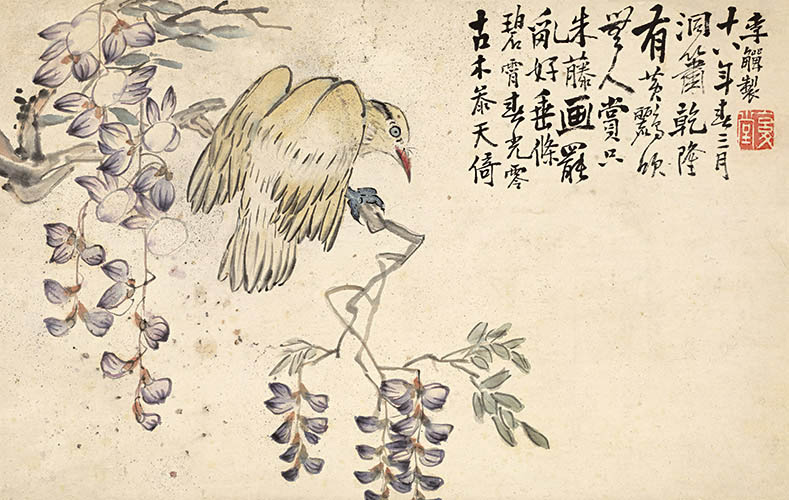 古木叅天倚
碧霄春光零
亂好垂條
朱藤画罷
無人賞只
有黃鸝頌
洞簫乾隆
十八年春三月
李鱓製